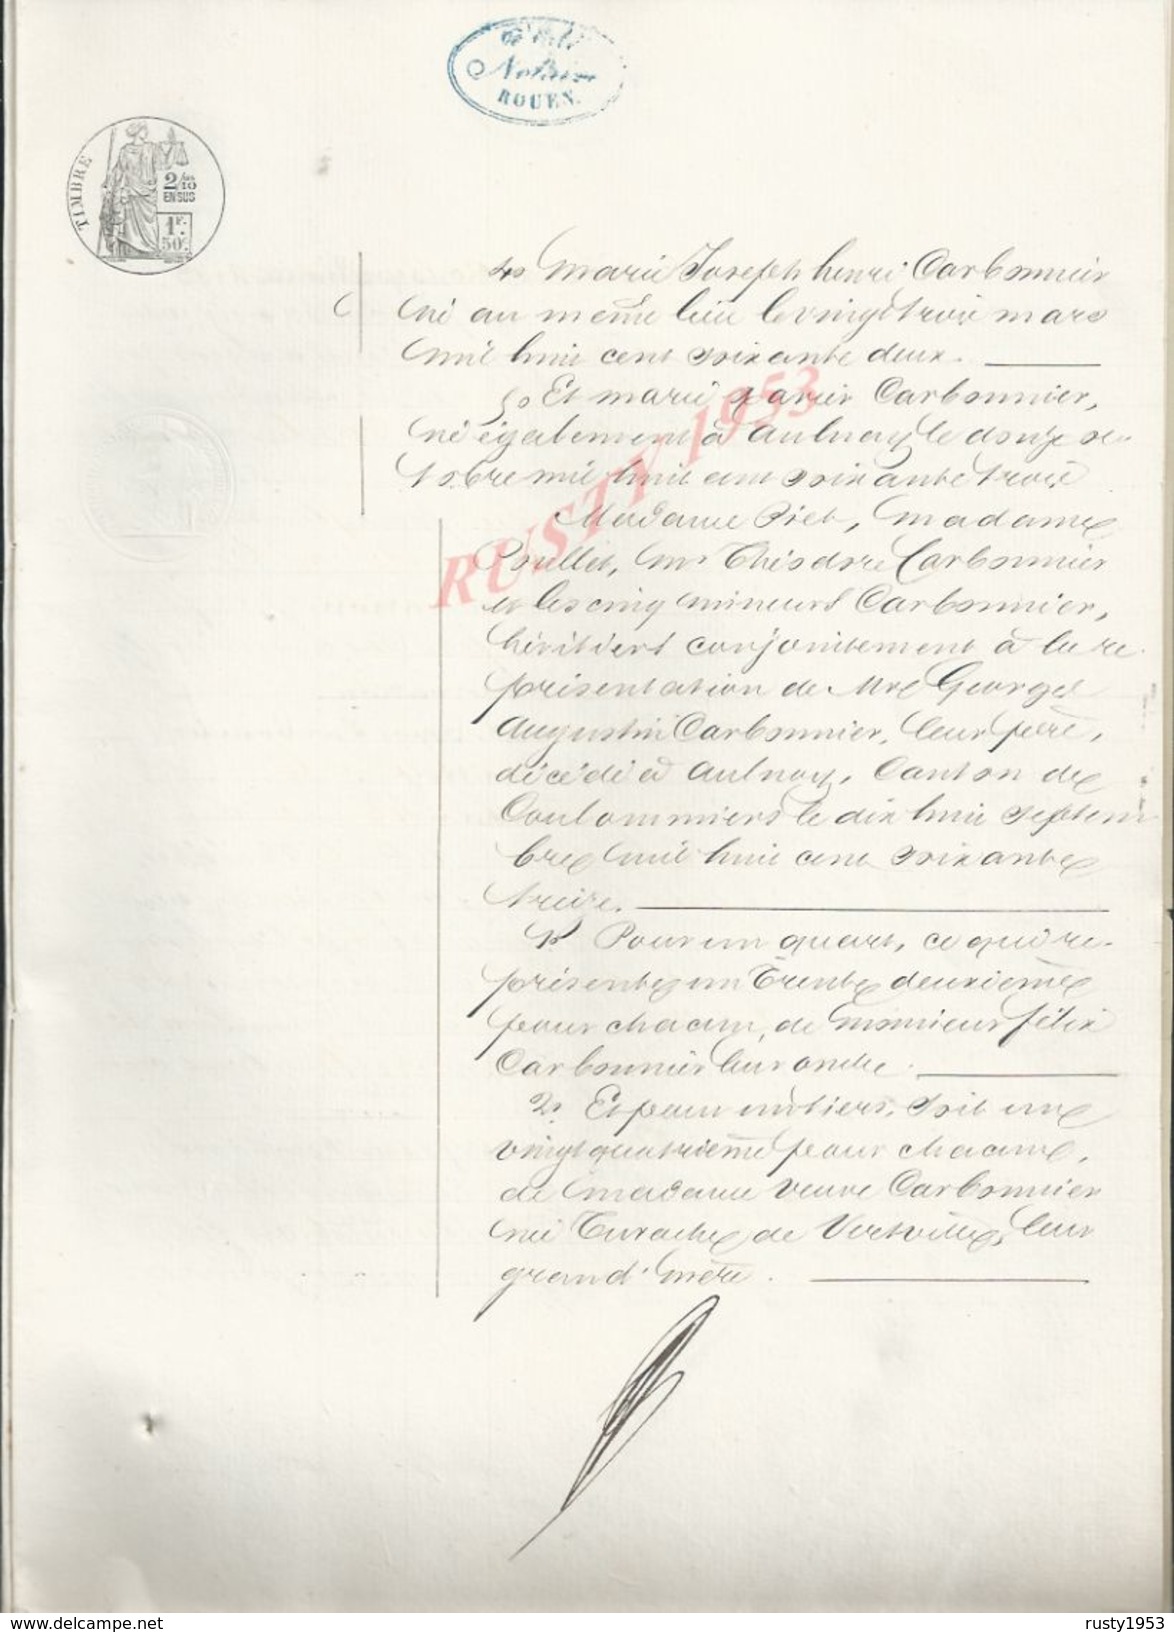 Notaire
ROUEN.
TIMBRE
2/10
EN SUS
1F.
50c.
4o Marie Joseph henri Carbonnier
né au même lieu le vingt trois mars
mil huit cent soixante deux.
5o Et marie Xavier Carbonnier,
né également à Aulnoy le douze oc-
tobre mil huit cent soixante trois
Madame Piet, madame
Poullet, Mr Théodore Carbonnier
et les cinq mineurs Carbonnier,
héritiers conjointement à la re
présentation de Mre Georges
Augustin Carbonnier, leur père,
décédé à Aulnoy, Canton de
Coulommiers le dix huit septem
bre mil huit cent soixante
treize.
1o Pour un quart, ce qui re-
présente un trente deuxième
pour chacun, de monsieur félix
Carbonnier leur oncle.
2o Et pour un tiers, soit un
vingt quatrième pour chacun,
de madame veuve Carbonnier
née Turache de Vertville, leur
grand'mère.
RUSTY 1953
https://www.delcampe.net
rusty1953